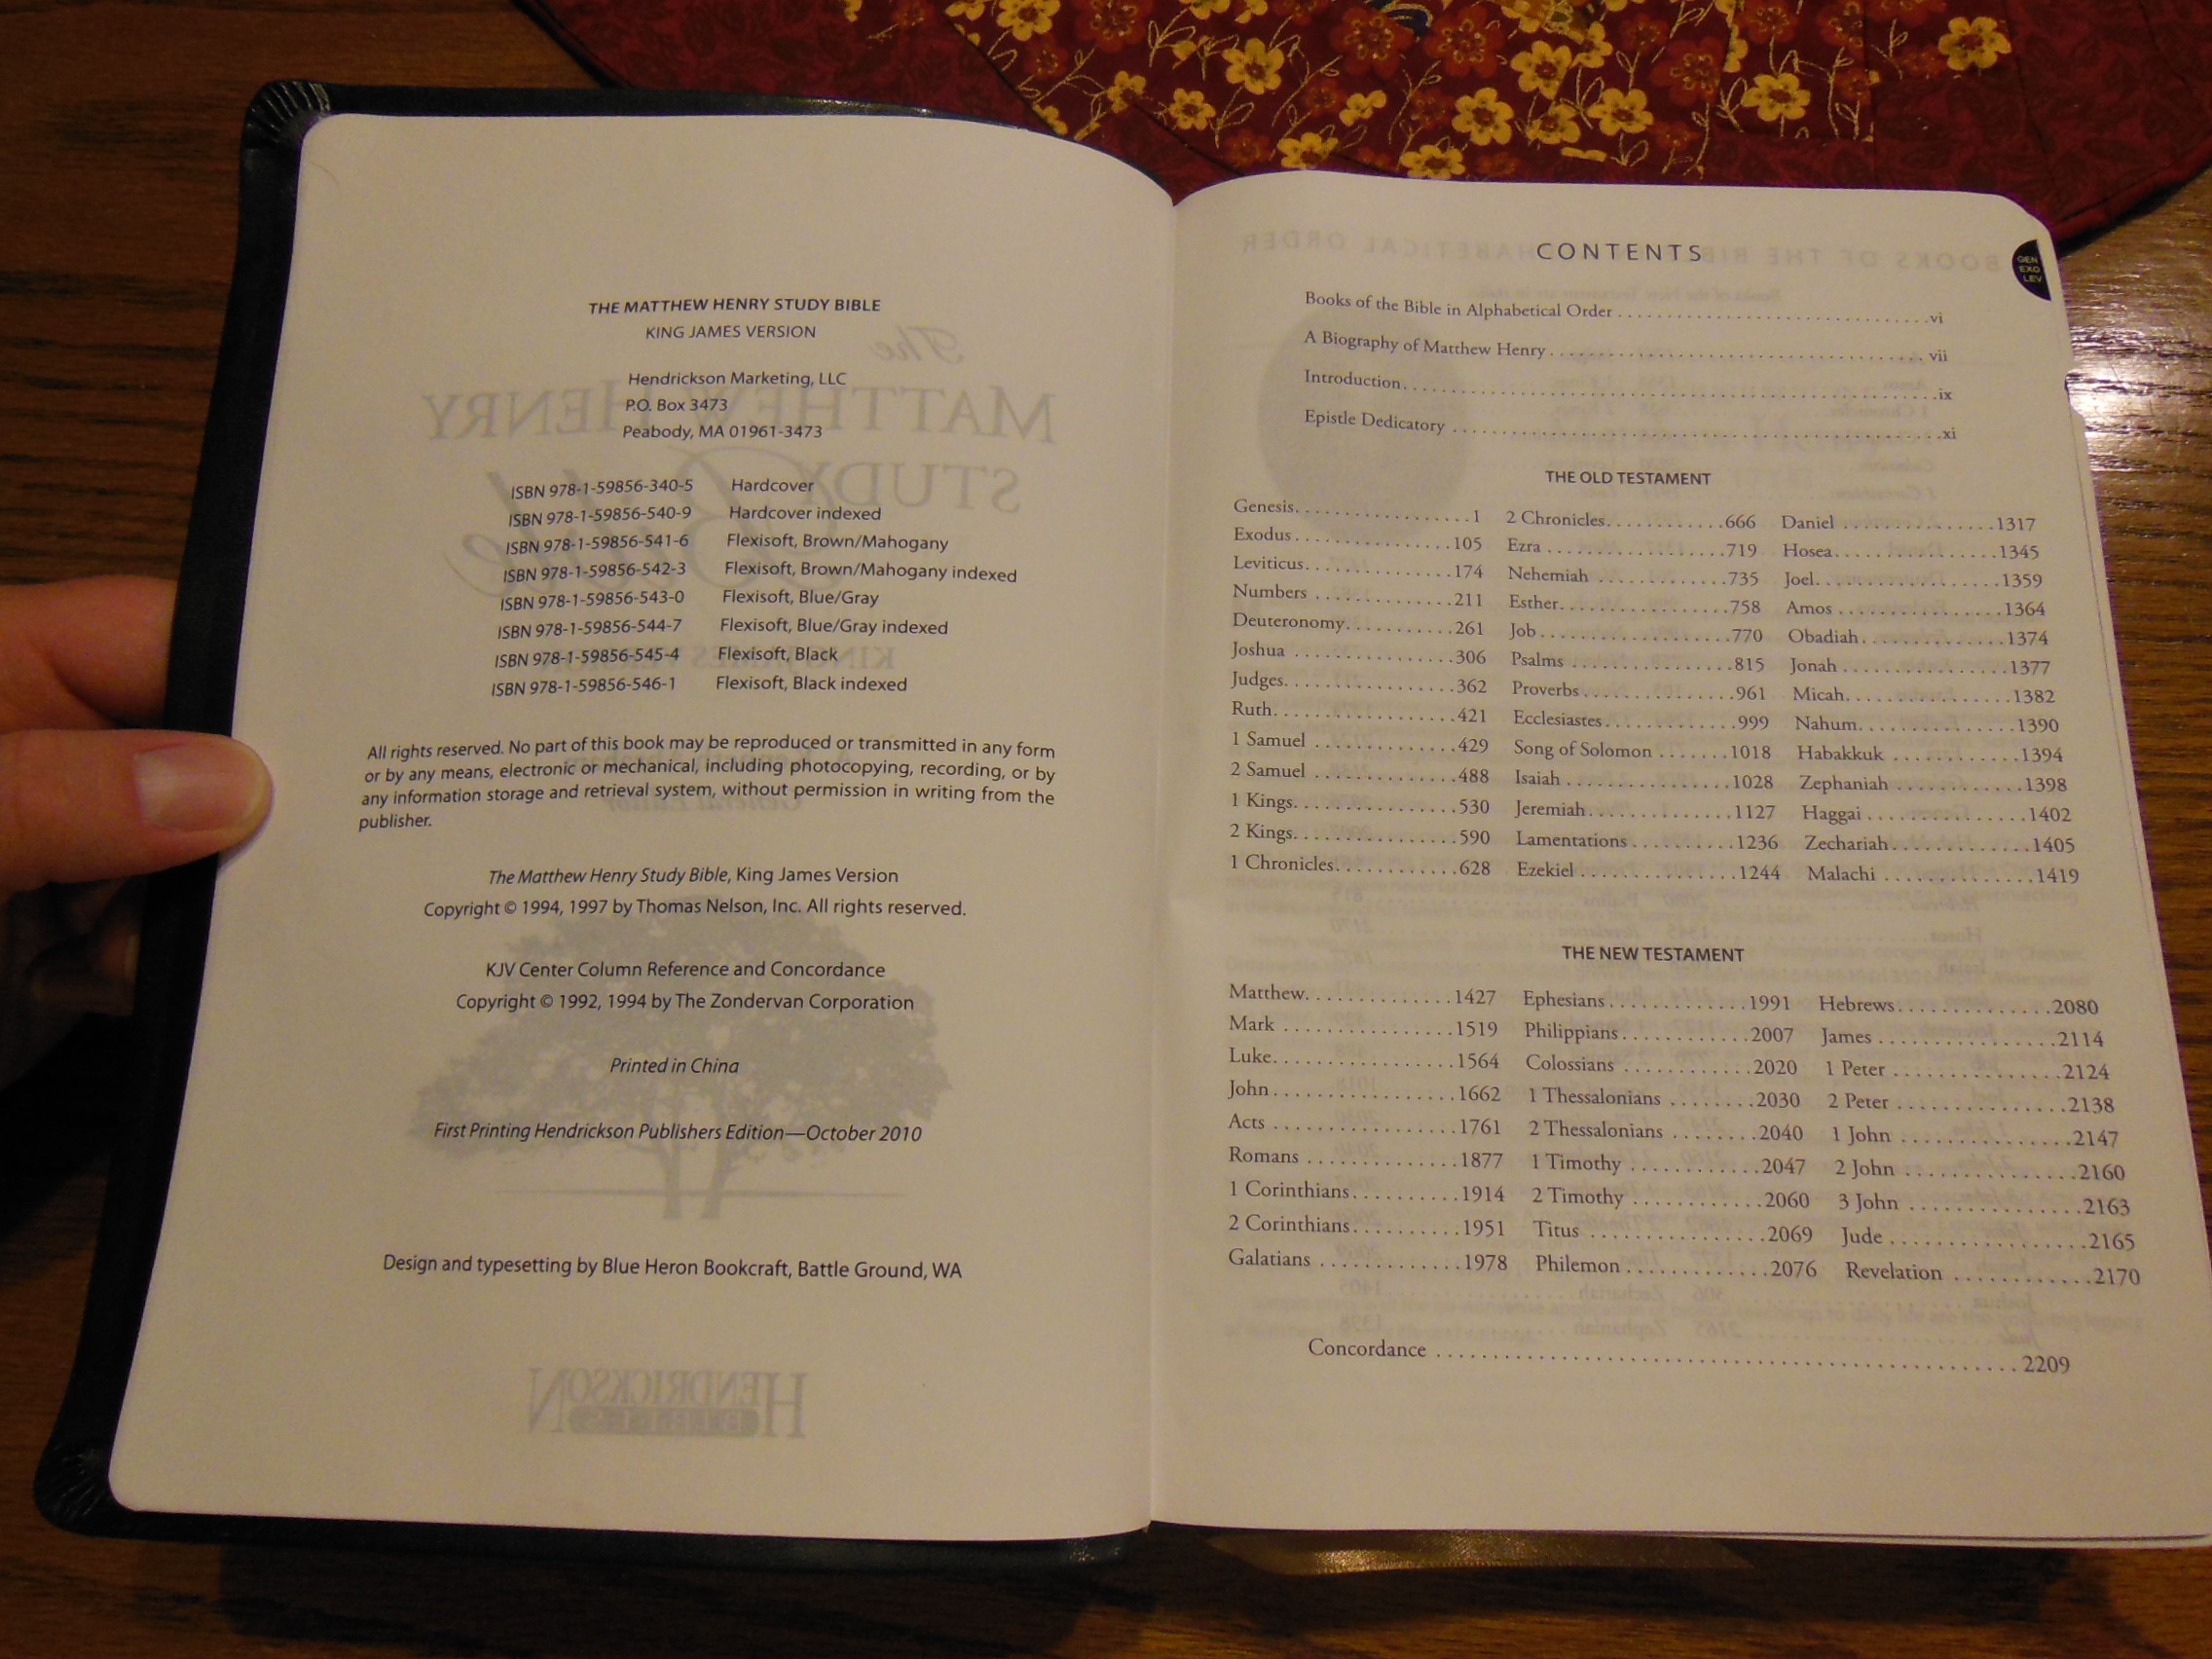 THE MATTHEW HENRY STUDY BIBLE
KING JAMES VERSION
Hendrickson Marketing, LLC
P.O. Box 3473
Peabody, MA 01961-3473
ISBN 978-1-59856-340-5 Hardcover
ISBN 978-1-59856-540-9 Hardcover indexed
ISBN 978-1-59856-541-6 Flexisoft, Brown/Mahogany
ISBN 978-1-59856-542-3 Flexisoft, Brown/Mahogany indexed
ISBN 978-1-59856-543-0 Flexisoft, Blue/Gray
ISBN 978-1-59856-544-7 Flexisoft, Blue/Gray indexed
ISBN 978-1-59856-545-4 Flexisoft, Black
ISBN 978-1-59856-546-1 Flexisoft, Black indexed
All rights reserved. No part of this book may be reproduced or transmitted in any form
or by any means, electronic or mechanical, including photocopying, recording, or by
any information storage and retrieval system, without permission in writing from the
publisher.
The Matthew Henry Study Bible, King James Version
Copyright © 1994, 1997 by Thomas Nelson, Inc. All rights reserved.
KJV Center Column Reference and Concordance
Copyright © 1992, 1994 by The Zondervan Corporation
Printed in China
First Printing Hendrickson Publishers Edition—October 2010
Design and typesetting by Blue Heron Bookcraft, Battle Ground, WA
CONTENTS
GEN
EXO
LEV
Books of the Bible in Alphabetical Order . . . . . vi
A Biography of Matthew Henry . . . . . vii
Introduction . . . . . ix
Epistle Dedicatory . . . . . xi
THE OLD TESTAMENT
Genesis . . . . . 1
Exodus . . . . . 105
Leviticus . . . . . 174
Numbers . . . . . 211
Deuteronomy . . . . . 261
Joshua . . . . . 306
Judges . . . . . 362
Ruth . . . . . 421
1 Samuel . . . . . 429
2 Samuel . . . . . 488
1 Kings . . . . . 530
2 Kings . . . . . 590
1 Chronicles . . . . . 628
2 Chronicles . . . . . 666
Ezra . . . . . 719
Nehemiah . . . . . 735
Esther . . . . . 758
Job . . . . . 770
Psalms . . . . . 815
Proverbs . . . . . 961
Ecclesiastes . . . . . 999
Song of Solomon . . . . . 1018
Isaiah . . . . . 1028
Jeremiah . . . . . 1127
Lamentations . . . . . 1236
Ezekiel . . . . . 1244
Daniel . . . . . 1317
Hosea . . . . . 1345
Joel . . . . . 1359
Amos . . . . . 1364
Obadiah . . . . . 1374
Jonah . . . . . 1377
Micah . . . . . 1382
Nahum . . . . . 1390
Habakkuk . . . . . 1394
Zephaniah . . . . . 1398
Haggai . . . . . 1402
Zechariah . . . . . 1405
Malachi . . . . . 1419
THE NEW TESTAMENT
Matthew . . . . . 1427
Mark . . . . . 1519
Luke . . . . . 1564
John . . . . . 1662
Acts . . . . . 1761
Romans . . . . . 1877
1 Corinthians . . . . . 1914
2 Corinthians . . . . . 1951
Galatians . . . . . 1978
Ephesians . . . . . 1991
Philippians . . . . . 2007
Colossians . . . . . 2020
1 Thessalonians . . . . . 2030
2 Thessalonians . . . . . 2040
1 Timothy . . . . . 2047
2 Timothy . . . . . 2060
Titus . . . . . 2069
Philemon . . . . . 2076
Hebrews . . . . . 2080
James . . . . . 2114
1 Peter . . . . . 2124
2 Peter . . . . . 2138
1 John . . . . . 2147
2 John . . . . . 2160
3 John . . . . . 2163
Jude . . . . . 2165
Revelation . . . . . 2170
Concordance . . . . . 2209